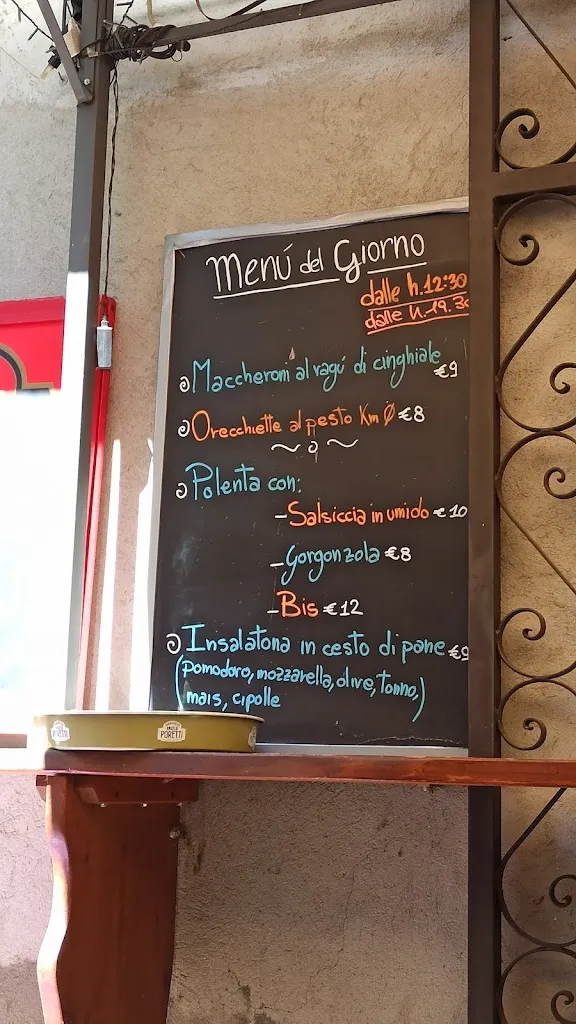 Menú del Giorno
dalle h.12:30
dalle h.19.30
Maccheroni al ragú di cinghiale €9
Orecchiette al pesto Km Ø €8
Polenta con:
- Salsiccia in umido €10
- Gorgonzola €8
- Bis €12
Insalatona in cesto di pane €9
(pomodoro, mozzarella, olive, tonno,)
mais, cipolle
PORETTI